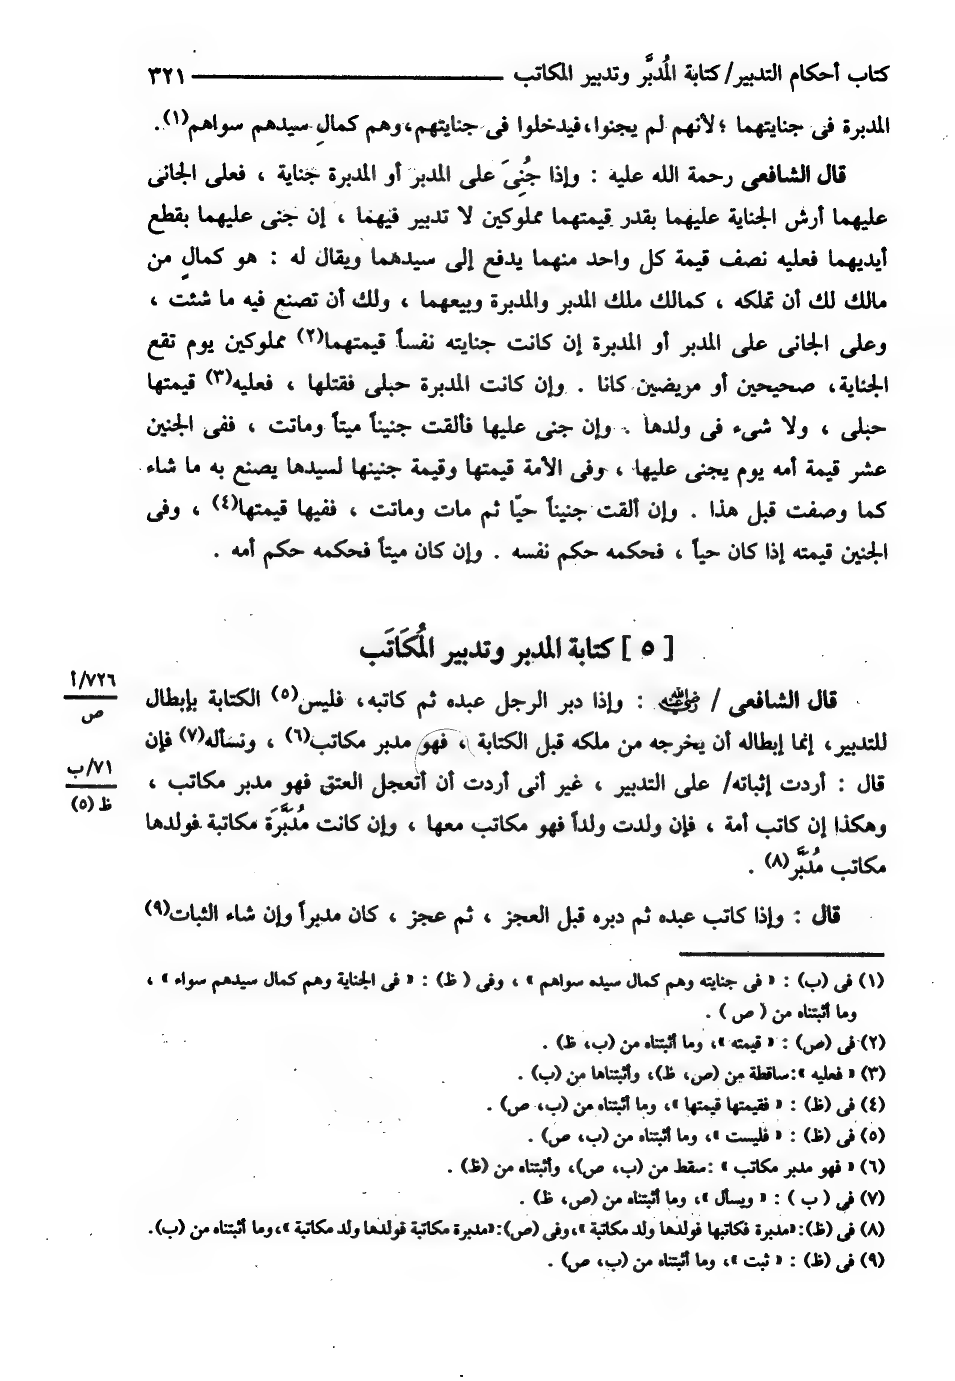 كتاب أحكام التدبير/ كتابة المُدبَّر وتدبير المكاتب ٣٢١
المدبرة فى جنايتهما ؛ لأنهم لم يجنوا، فيدخلوا فى جنايتهم، وهم كمالِ سيدهم سواهم(١).
قال الشافعى رحمة الله عليه : وإذا جُنِىَ على المدبر أو المدبرة جناية ، فعلى الجانى
عليهما أرش الجناية عليهما بقدر قيمتهما مملوكين لا تدبير فيهما ، إن جنى عليهما بقطع
أيديهما فعليه نصف قيمة كل واحد منهما يدفع إلى سيدهما ويقال له : هو كمالٍ من
مالك لك أن تملكه ، كمالك ملك المدبر والمدبرة وبيعهما ، ولك أن تصنع فيه ما شئت ،
وعلى الجانى على المدبر أو المدبرة إن كانت جنايته نفساً قيمتهما(٢) مملوكين يوم تقع
الجناية، صحيحين أو مريضين كانا . وإن كانت المدبرة حبلى فقتلها ، فعليه(٣) قيمتها
حبلى ، ولا شىء فى ولدها . وإن جنى عليها فألقت جنيناً ميتاً وماتت ، ففى الجنين
عشر قيمة أمه يوم يجنى عليها ، وفى الأمة قيمتها وقيمة جنينها لسيدها يصنع به ما شاء
كما وصفت قبل هذا . وإن ألقت جنيناً حيّا ثم مات وماتت ، ففيها قيمتها(٤) ، وفى
الجنين قيمته إذا كان حياً ، فحكمه حكم نفسه . وإن كان ميتاً فحكمه حكم أمه .
[ ٥ ] كتابة المدبر وتدبير المُكَاتَب
قال الشافعى / رضي الله عنه : وإذا دبر الرجل عبده ثم كاتبه، فليس(٥) الكتابة بإبطال
للتدبير، إنما إبطاله أن يخرجه من ملكه قبل الكتابة ، فهو مدبر مكاتب(٦) ، ونسأله(٧) فإن
قال : أردت إثباته/ على التدبير ، غير أنى أردت أن أتعجل العتق فهو مدبر مكاتب ،
وهكذا إن كاتب أمة ، فإن ولدت ولداً فهو مكاتب معها ، وإن كانت مُدَبَّرَة مكاتبة فولدها
مكاتب مُدَبَّر(٨) .
قال : وإذا كاتب عبده ثم دبره قبل العجز ، ثم عجز ، كان مدبراً وإن شاء الثبات(٩)
٧٢٦/أ
ص
٧١/ب
ظ (٥)
(١) فى (ب) : « فى جنايته وهم كمال سيده سواهم » ، وفى ( ظ) : « فى الجناية وهم كمال سيدهم سواء » ،
وما أثبتناه من ( ص ) .
(٢) فى (ص) : « قيمته »، وما أثبتناه من (ب، ظ) .
(٣) « فعليه »:ساقطة من (ص، ظ)، وأثبتناها من (ب) .
(٤) فى (ظ) : « فقيمتها قيمتها »، وما أثبتناه من (ب، ص) .
(٥) فى (ظ) : « فليست »، وما أثبتناه من (ب، ص) .
(٦) « فهو مدبر مكاتب » :سقط من (ب، ص)، وأثبتناه من (ظ) .
(٧) فى ( ب ) : « ويسأل »، وما أثبتناه من (ص، ظ) .
(٨) فى (ظ): «مدبرة فكاتبها فولدها ولد مكاتبة »،وفى (ص): «مدبرة مكاتبة فولدها ولد مكاتبة »،وما أثبتناه من (ب).
(٩) فى (ظ) : « ثبت »، وما أثبتناه من (ب، ص) .